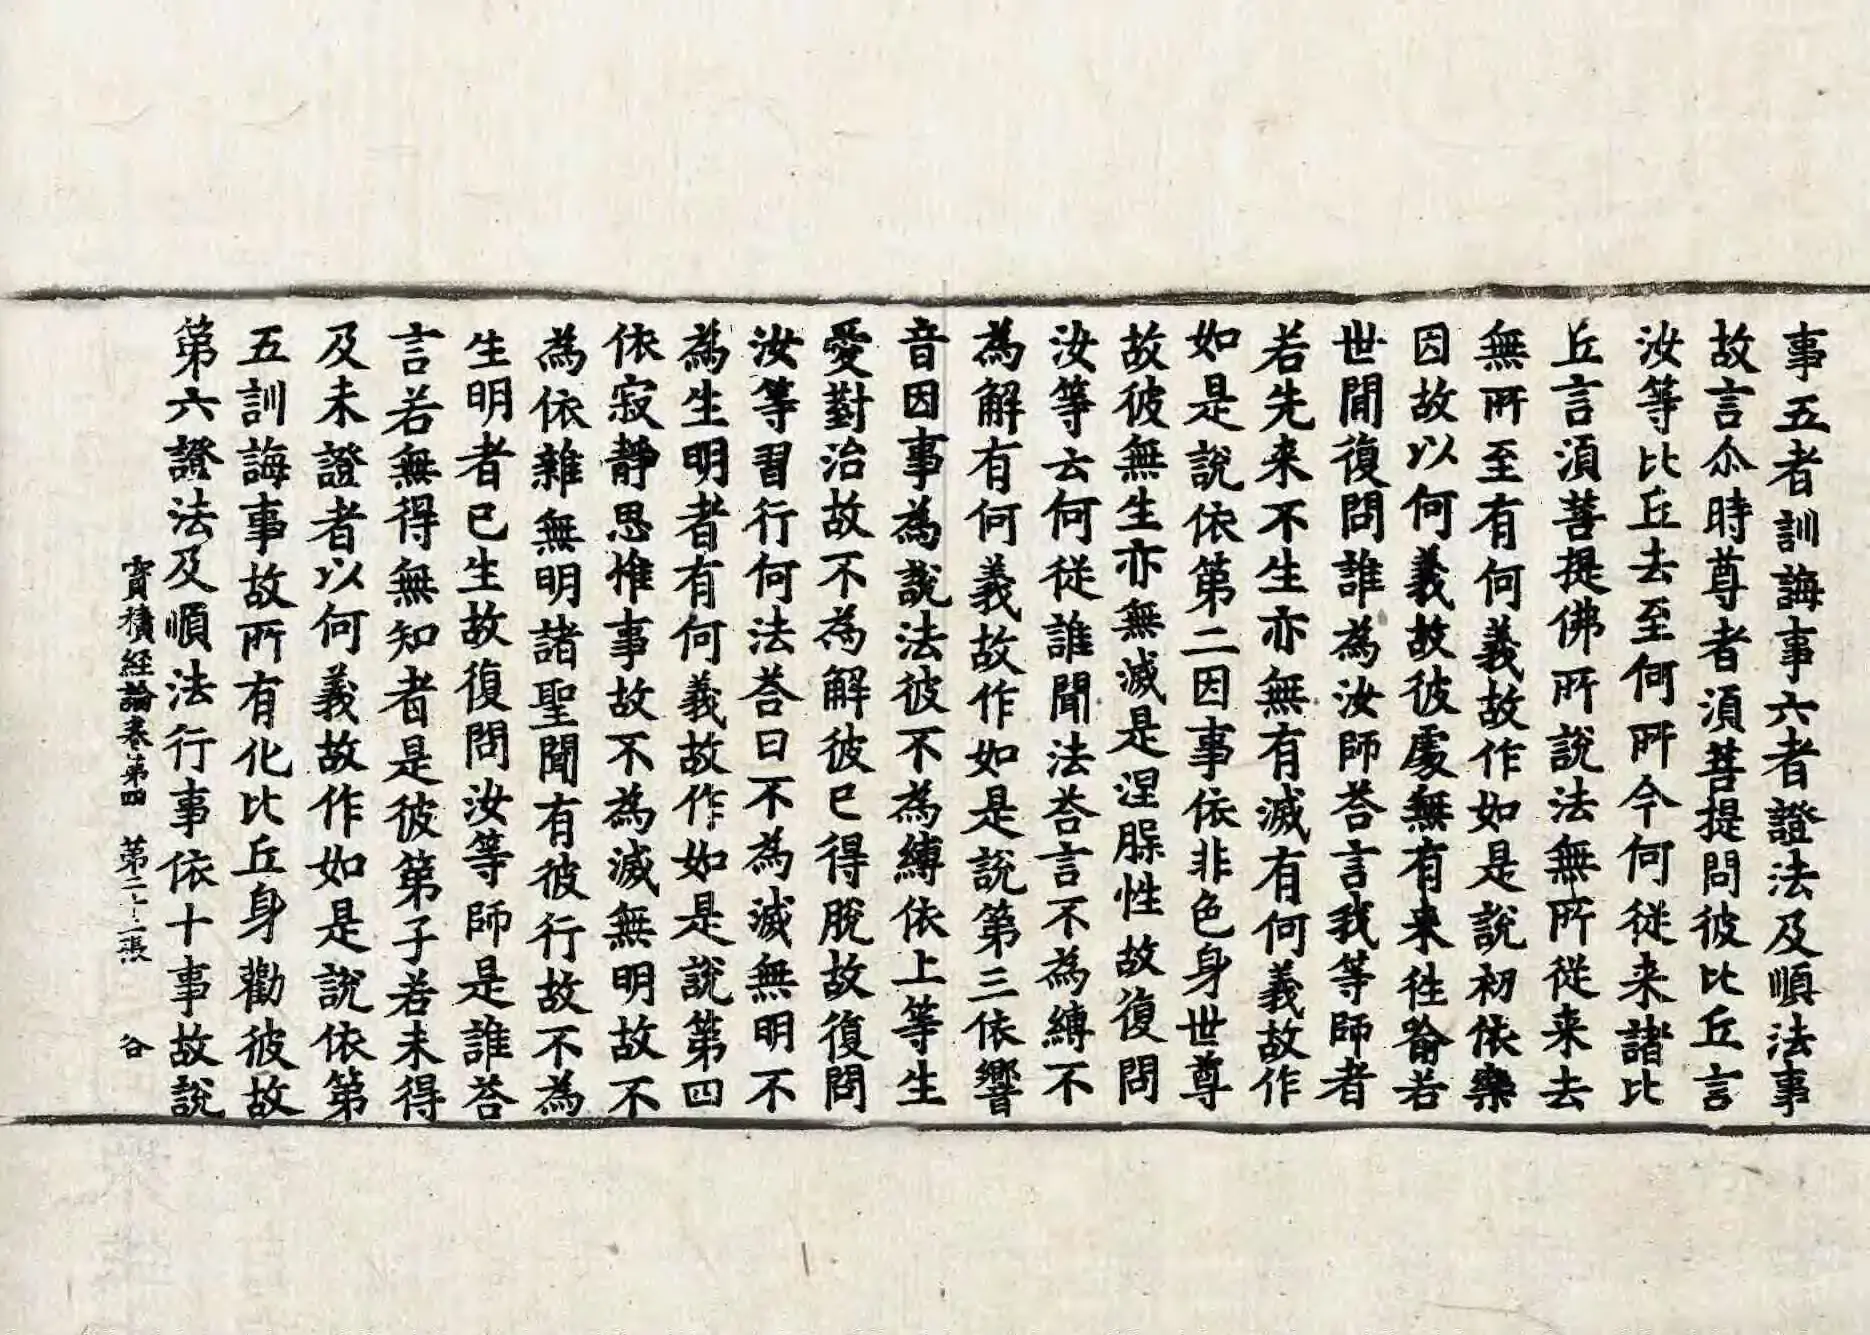 事五者訓誨事六者證法及順法事
故言尒時尊者湏菩提問彼比丘言
汝等比丘去至何所今何從来諸比
丘言湏菩提佛所說法無所從来去
無所至有何義故作如是說初依樂
因故以何義故彼處無有来徃喻若
世閒復問誰為汝師荅言我等師者
若先来不生亦無有滅有何義故作
如是說依第二因事依非色身世尊
故彼無生亦無滅是涅槃性故復問
汝等云何從誰聞法荅言不為縛不
為解有何義故作如是說第三依響
音因事為說法彼不為縛依上等生
愛對治故不為解彼已得脫故復問
汝等習行何法荅曰不為滅無明不
為生明者有何義故作如是說第四
依寂靜思惟事故不為滅無明故不
為依雜無明諸聖聞有彼行故不為
生明者已生故復問汝等師是誰荅
言若無得無知者是彼第子若未得
及未證者以何義故作如是說依第
五訓誨事故所有化比丘身勸彼故
第六證法及順法行事依十事故說
寶積經論卷第四 第二十二張 谷